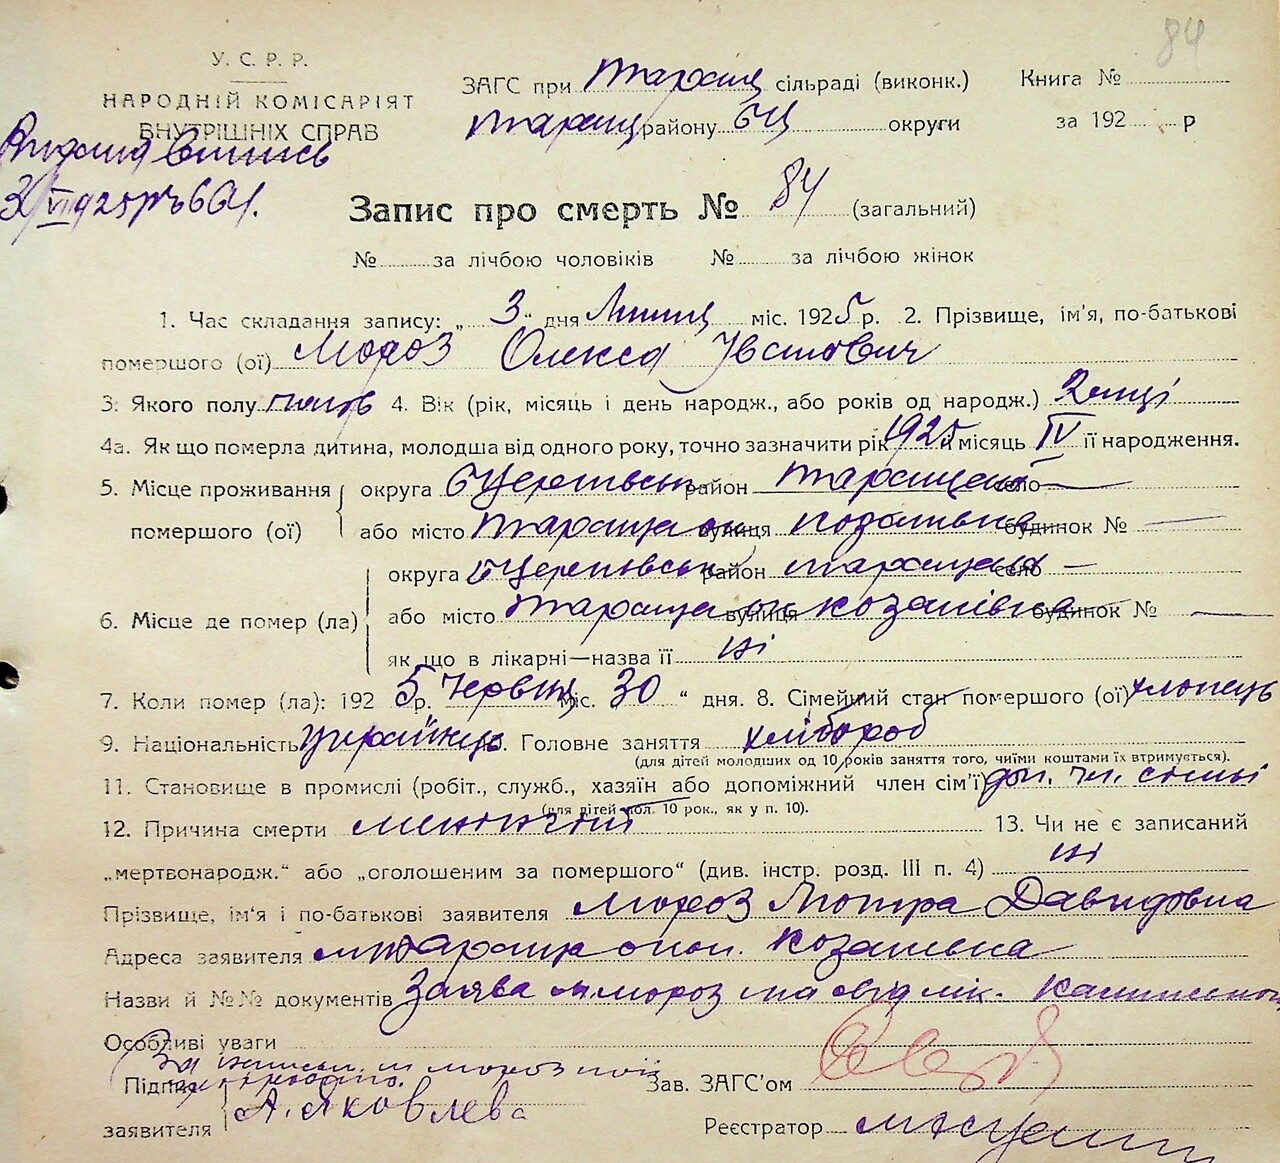 84
У. С. Р. Р.
НАРОДНІЙ КОМІСАРІЯТ
ВНУТРІШНІХ СПРАВ
ЗАГС при Таращ сільраді (виконк.) Книга №
Таращ району БЦ округи за 192 р
Запис про смерть № 84 (загальний)
№ за лічбою чоловіків № за лічбою жінок
1. Час складання запису: „ 3 “ дня Липця міс. 1925 р. 2. Прізвище, ім'я, по-батькові
помершого (ої) Мороз Олекса Іванович
3. Якого полу 4. Вік (рік, місяць і день народж., або років од народж.) 2 місці
4а. Як що померла дитина, молодша від одного року, точно зазначити рік 1925 місяць IV її народження.
5. Місце проживання округа БЦерківськ район Таращанс село —
помершого (ої) або місто Тараща вулиця будинок № —
округа БЦерківськ район Таращанс село —
6. Місце де помер (ла) або місто Тараща ок козанівка вулиця будинок № —
як що в лікарні—назва її ні
7. Коли помер (ла): 192 5 р. Червця міс. 30 “ дня. 8. Сімейний стан помершого (ої) хлопець
9. Національність українець 10. Головне заняття хлібороб
(для дітей молодших од 10 років заняття того, чиїми коштами їх втримується).
11. Становище в промислі (робіт., служб., хазяїн або допоміжний член сім'ї) доп. чл. сімьї
(для дітей мол. 10 рок., як у п. 10).
12. Причина смерти менінгіт 13. Чи не є записаний
„мертвонародж.“ або „оголошеним за помершого“ (див. інстр. розд. III п. 4) ні
Прізвище, ім'я і по-батькові заявителя Мороз Мотря Давидовна
Адреса заявителя м Тараща окол. Козанівка
Назви й №№ документів Заява м мороз та лік.
Особливі уваги
За мороз
Підпис Зав. ЗАГС'ом
заявителя А. Яковлева
Реєстратор